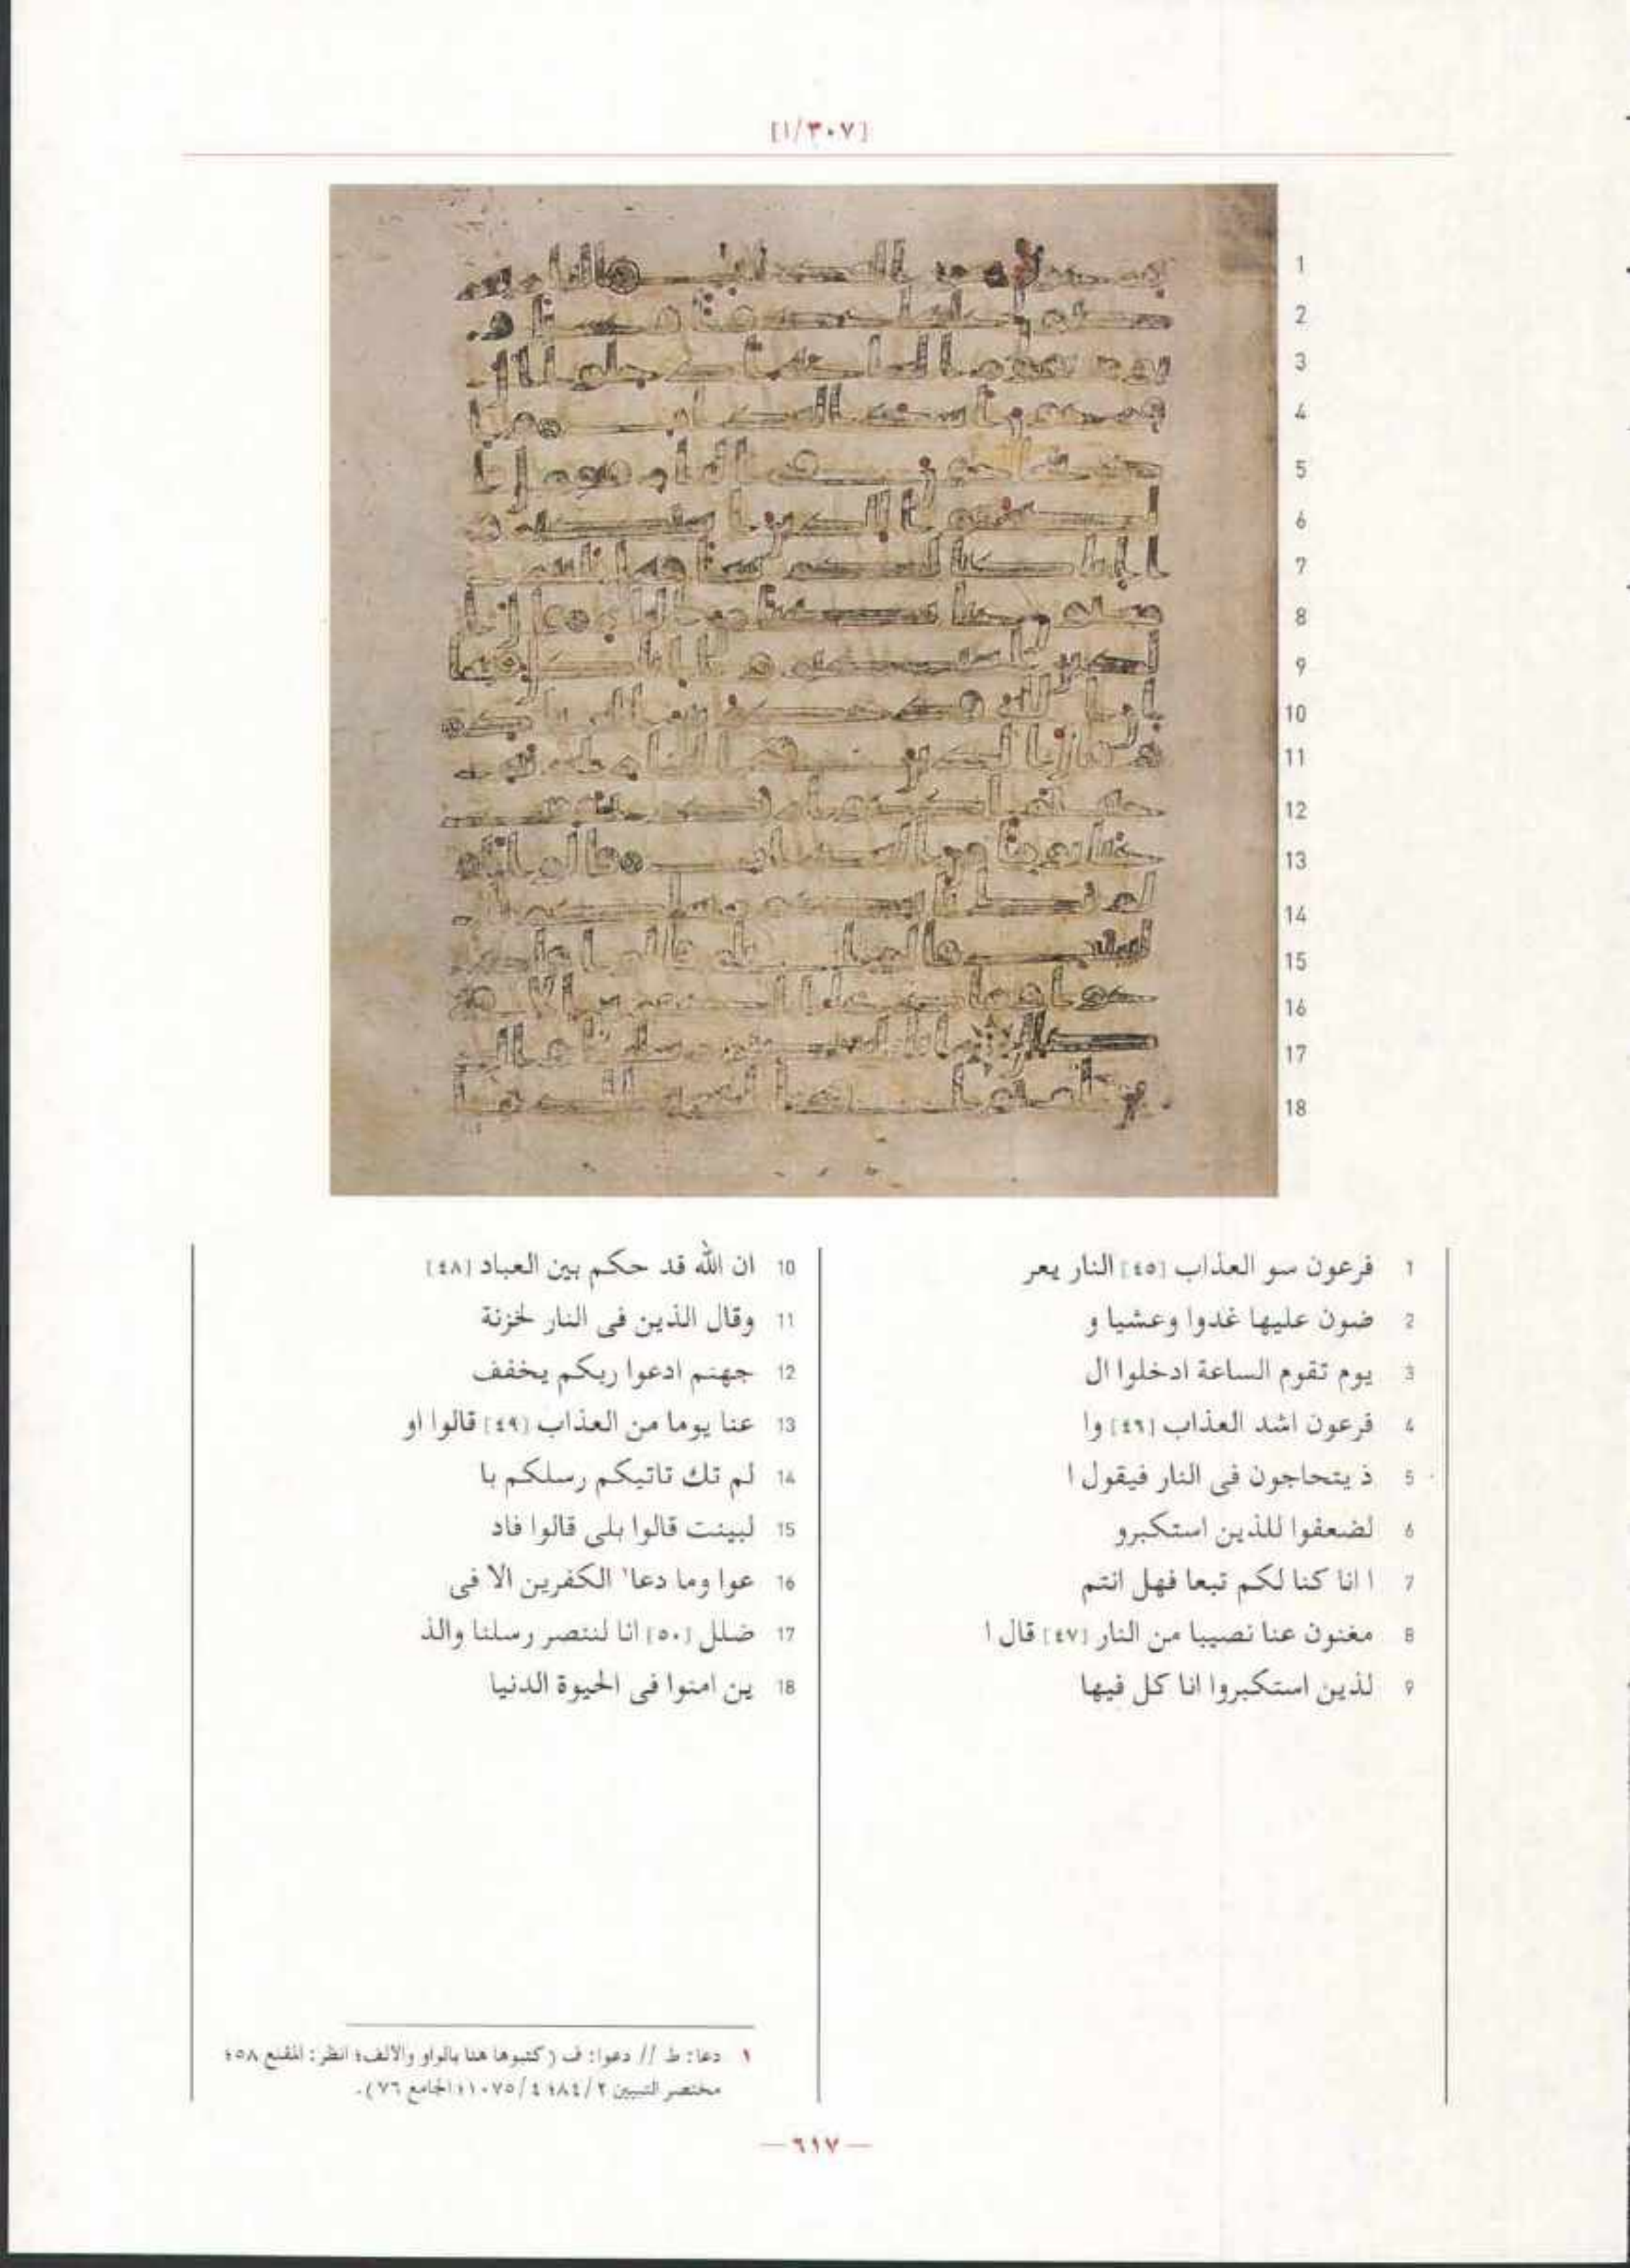 [١/٣٠٧]
1 فرعون سو العذاب [٤٥] النار يعر
2 ضون عليها غدوا وعشيا و
3 يوم تقوم الساعة ادخلوا ال
4 فرعون اشد العذاب [٤٦] وا
5 ذ يتحاجون فى النار فيقول ا
6 لضعفوا للذين استكبرو
7 ا انا كنا لكم تبعا فهل انتم
8 مغنون عنا نصيبا من النار [٤٧] قال ا
9 لذين استكبروا انا كل فيها
10 ان الله قد حكم بين العباد [٤٨]
11 وقال الذين فى النار لخزنة
12 جهنم ادعوا ربكم يخفف
13 عنا يوما من العذاب [٤٩] قالوا او
14 لم تك تاتيكم رسلكم با
15 لبينت قالوا بلى قالوا فاد
16 عوا وما دعا١ الكفرين الا فى
17 ضلل [٥٠] انا لننصر رسلنا والذ
18 ين امنوا فى الحيوة الدنيا
١ دعا: ط // دعوا: ف (كتبوها هنا بالواو والالف؛ انظر: المقنع ٥٨؛
مختصر التبيين ٢/٨٤؛ ٤/١٠٧٥؛ الجامع ٧٦).
— ٦١٧ —